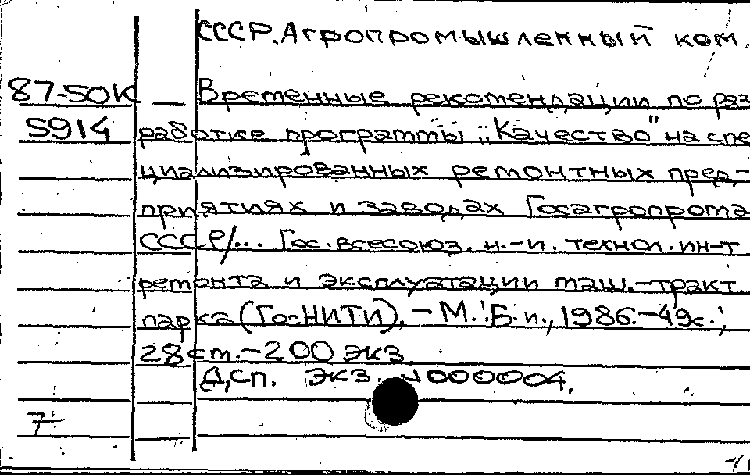 СССР. Агропромышленный ком.
87-50К — Временные рекомендации по раз
5914 работке программы „Качество" на спе
циализированных ремонтных пред-
приятиях и заводах Госагропрома
СССР/... Гос. всесоюз. н.-и. технол. ин-т
ремонта и эксплуатации маш.-тракт
парка (ГосНИТИ), – М.: Б.и., 1986.-49с.;
28 см.-200 экз.
ДСП. Экз. №000004.
7